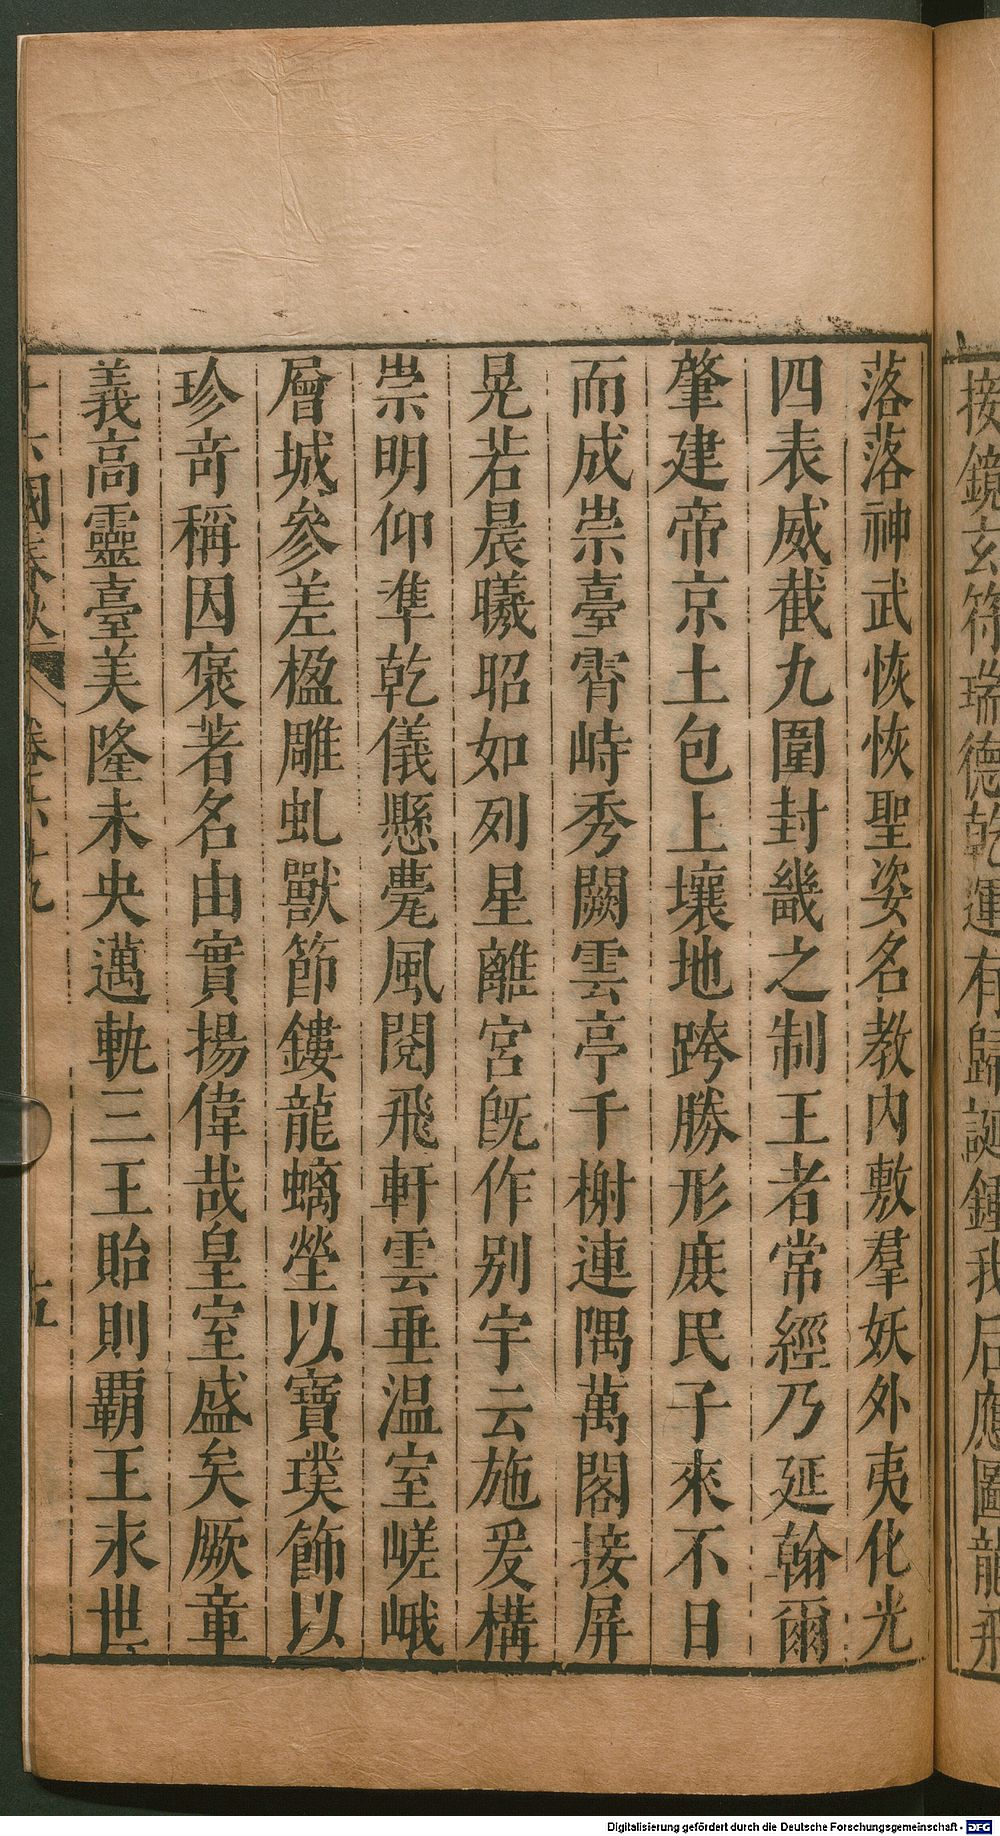 接鏡玄符瑞德乾運有歸誕鍾我后應圖龍飛
落落神武恢恢聖姿名教內敷羣妖外夷化光
四表威截九圍封畿之制王者常經乃延翰爾
肇建帝京土包上壤地跨勝形庶民子來不日
而成崇臺霄峙秀闕雲亭千榭連隅萬閣接屏
晃若晨曦昭如列星離宮旣作別宇云施爰構
崇明仰準乾儀懸甍風閱飛軒雲垂温室嵯峨
層城參差楹雕虬獸節鏤龍螭瑩以寶璞飾以
珍奇稱因褒著名由實揚偉哉皇室盛矣厥章
義高靈臺美隆未央邁軌三王貽則霸王永世
十六國春秋 卷六十九 五
Digitalisierung gefördert durch die Deutsche Forschungsgemeinschaft - DFG